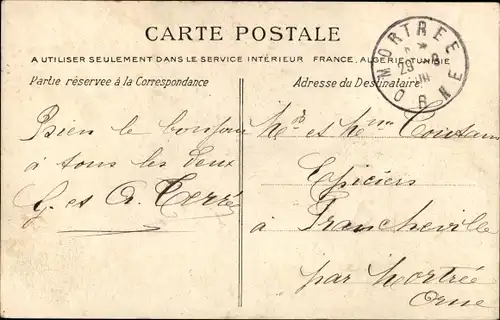 CARTE POSTALE
A UTILISER SEULEMENT DANS LE SERVICE INTÉRIEUR FRANCE, ALGERIE, TUNISIE
Partie réservée à la Correspondance
Adresse du Destinataire
MORTREE
28
ORNE
Bien le bonjour
à tous les deux
G. et A. Terré
Mr et Mme Coutan
Epiciers
à Francheville
par Mortrée
Orne